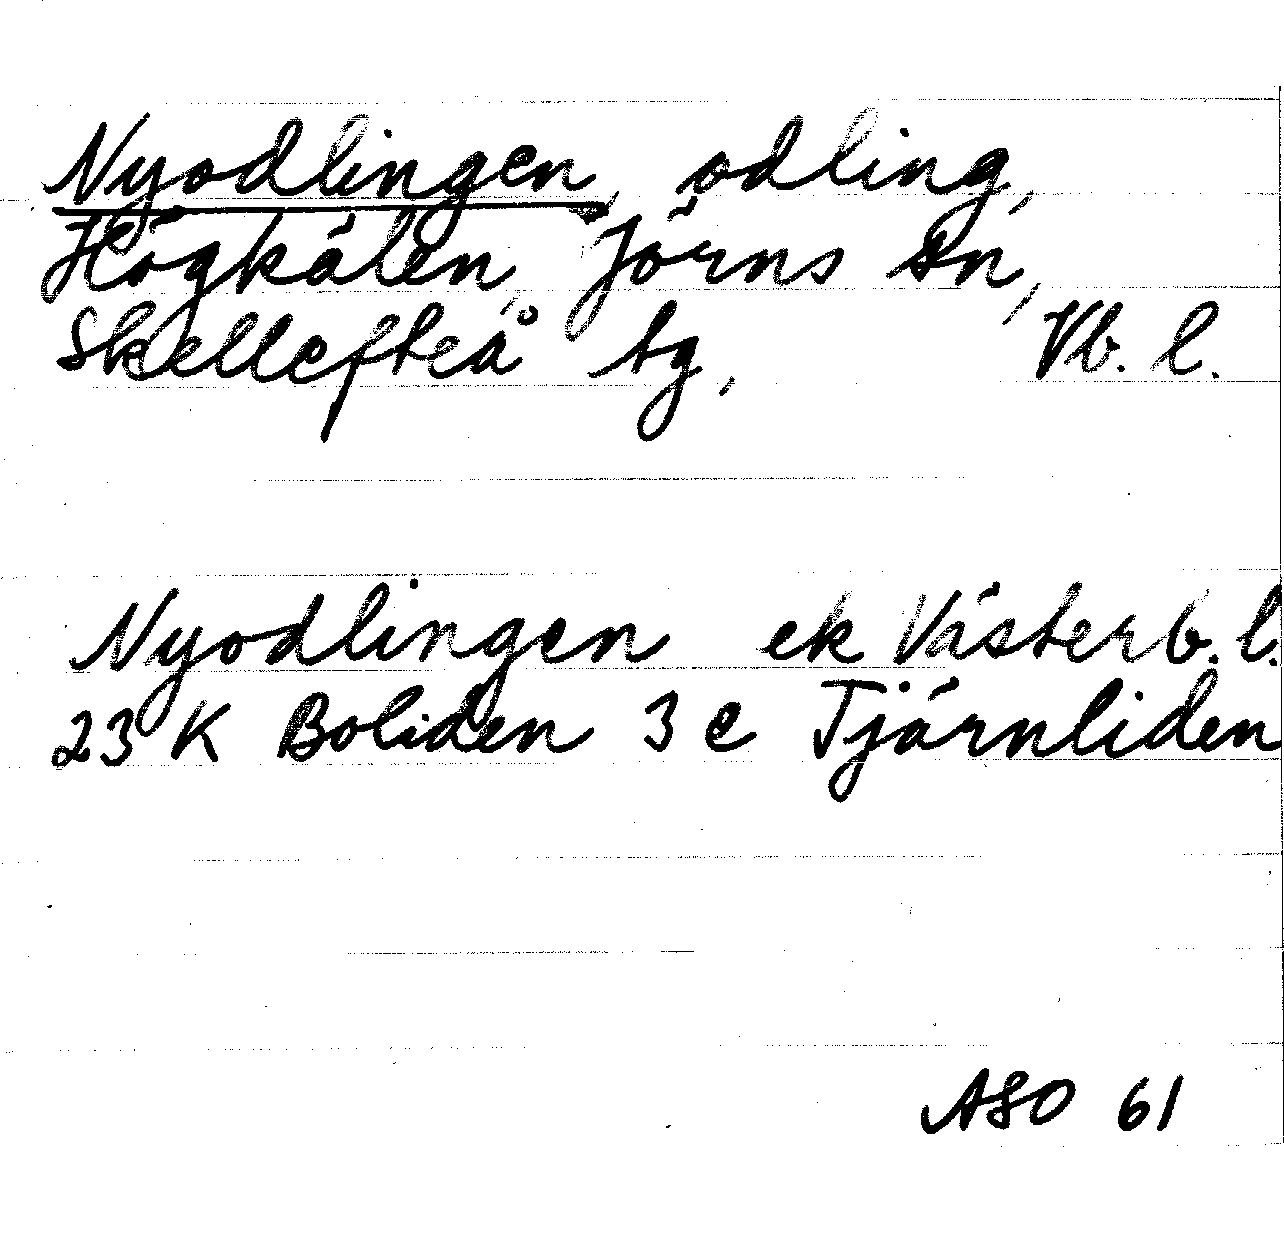 Nyodlingen, odling,
Högkälen, Jörns sn,
Skellefteå tg, Vb. l.
Nyodlingen ek Västerb. l.
23 K Boliden 3 e Tjärnliden
ASO 61